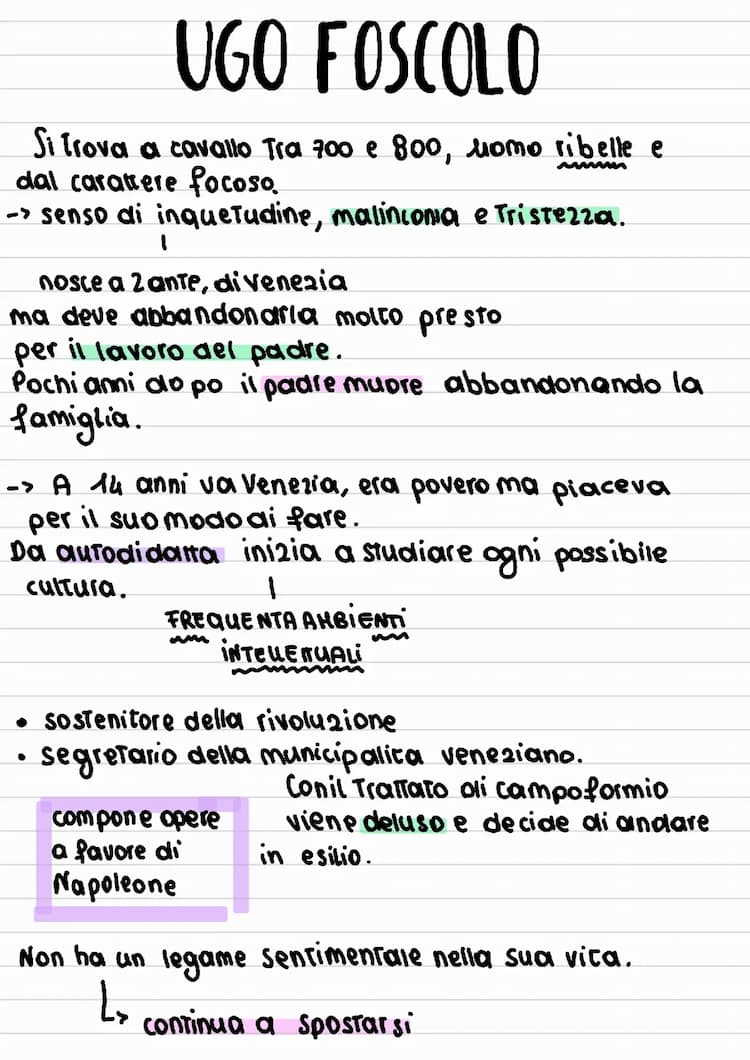 UGO FOSCOLO
Si trova a cavallo tra 700 e 800, uomo ribelle e
dal carattere focoso.
-> senso di inquetudine, malinconia e tristezza.
nasce a Zante, di venezia
ma deve abbandonarla molto presto
per il lavoro del padre.
Pochi anni do po il padre muore abbandonando la
famiglia.
-> A 14 anni va Venezia, era povero ma piaceva
per il suo modo di fare.
Da autodidatta inizia a studiare ogni possibile
cultura.
FREQUENTA AMBIENTi
iNTELLETTUALi
• sostenitore della rivoluzione
• segretario della municipalita veneziano.
Con il Trattato di campoformio
viene deluso e decide di andare
in esilio.
compone opere
a favore di
Napoleone
Non ha un legame sentimentale nella sua vita.
continua a spostarsi